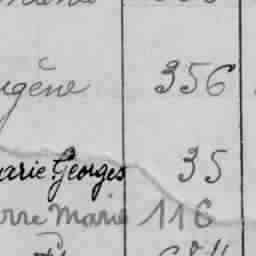 ugène 356
arie Georges 35
rre Marie 116